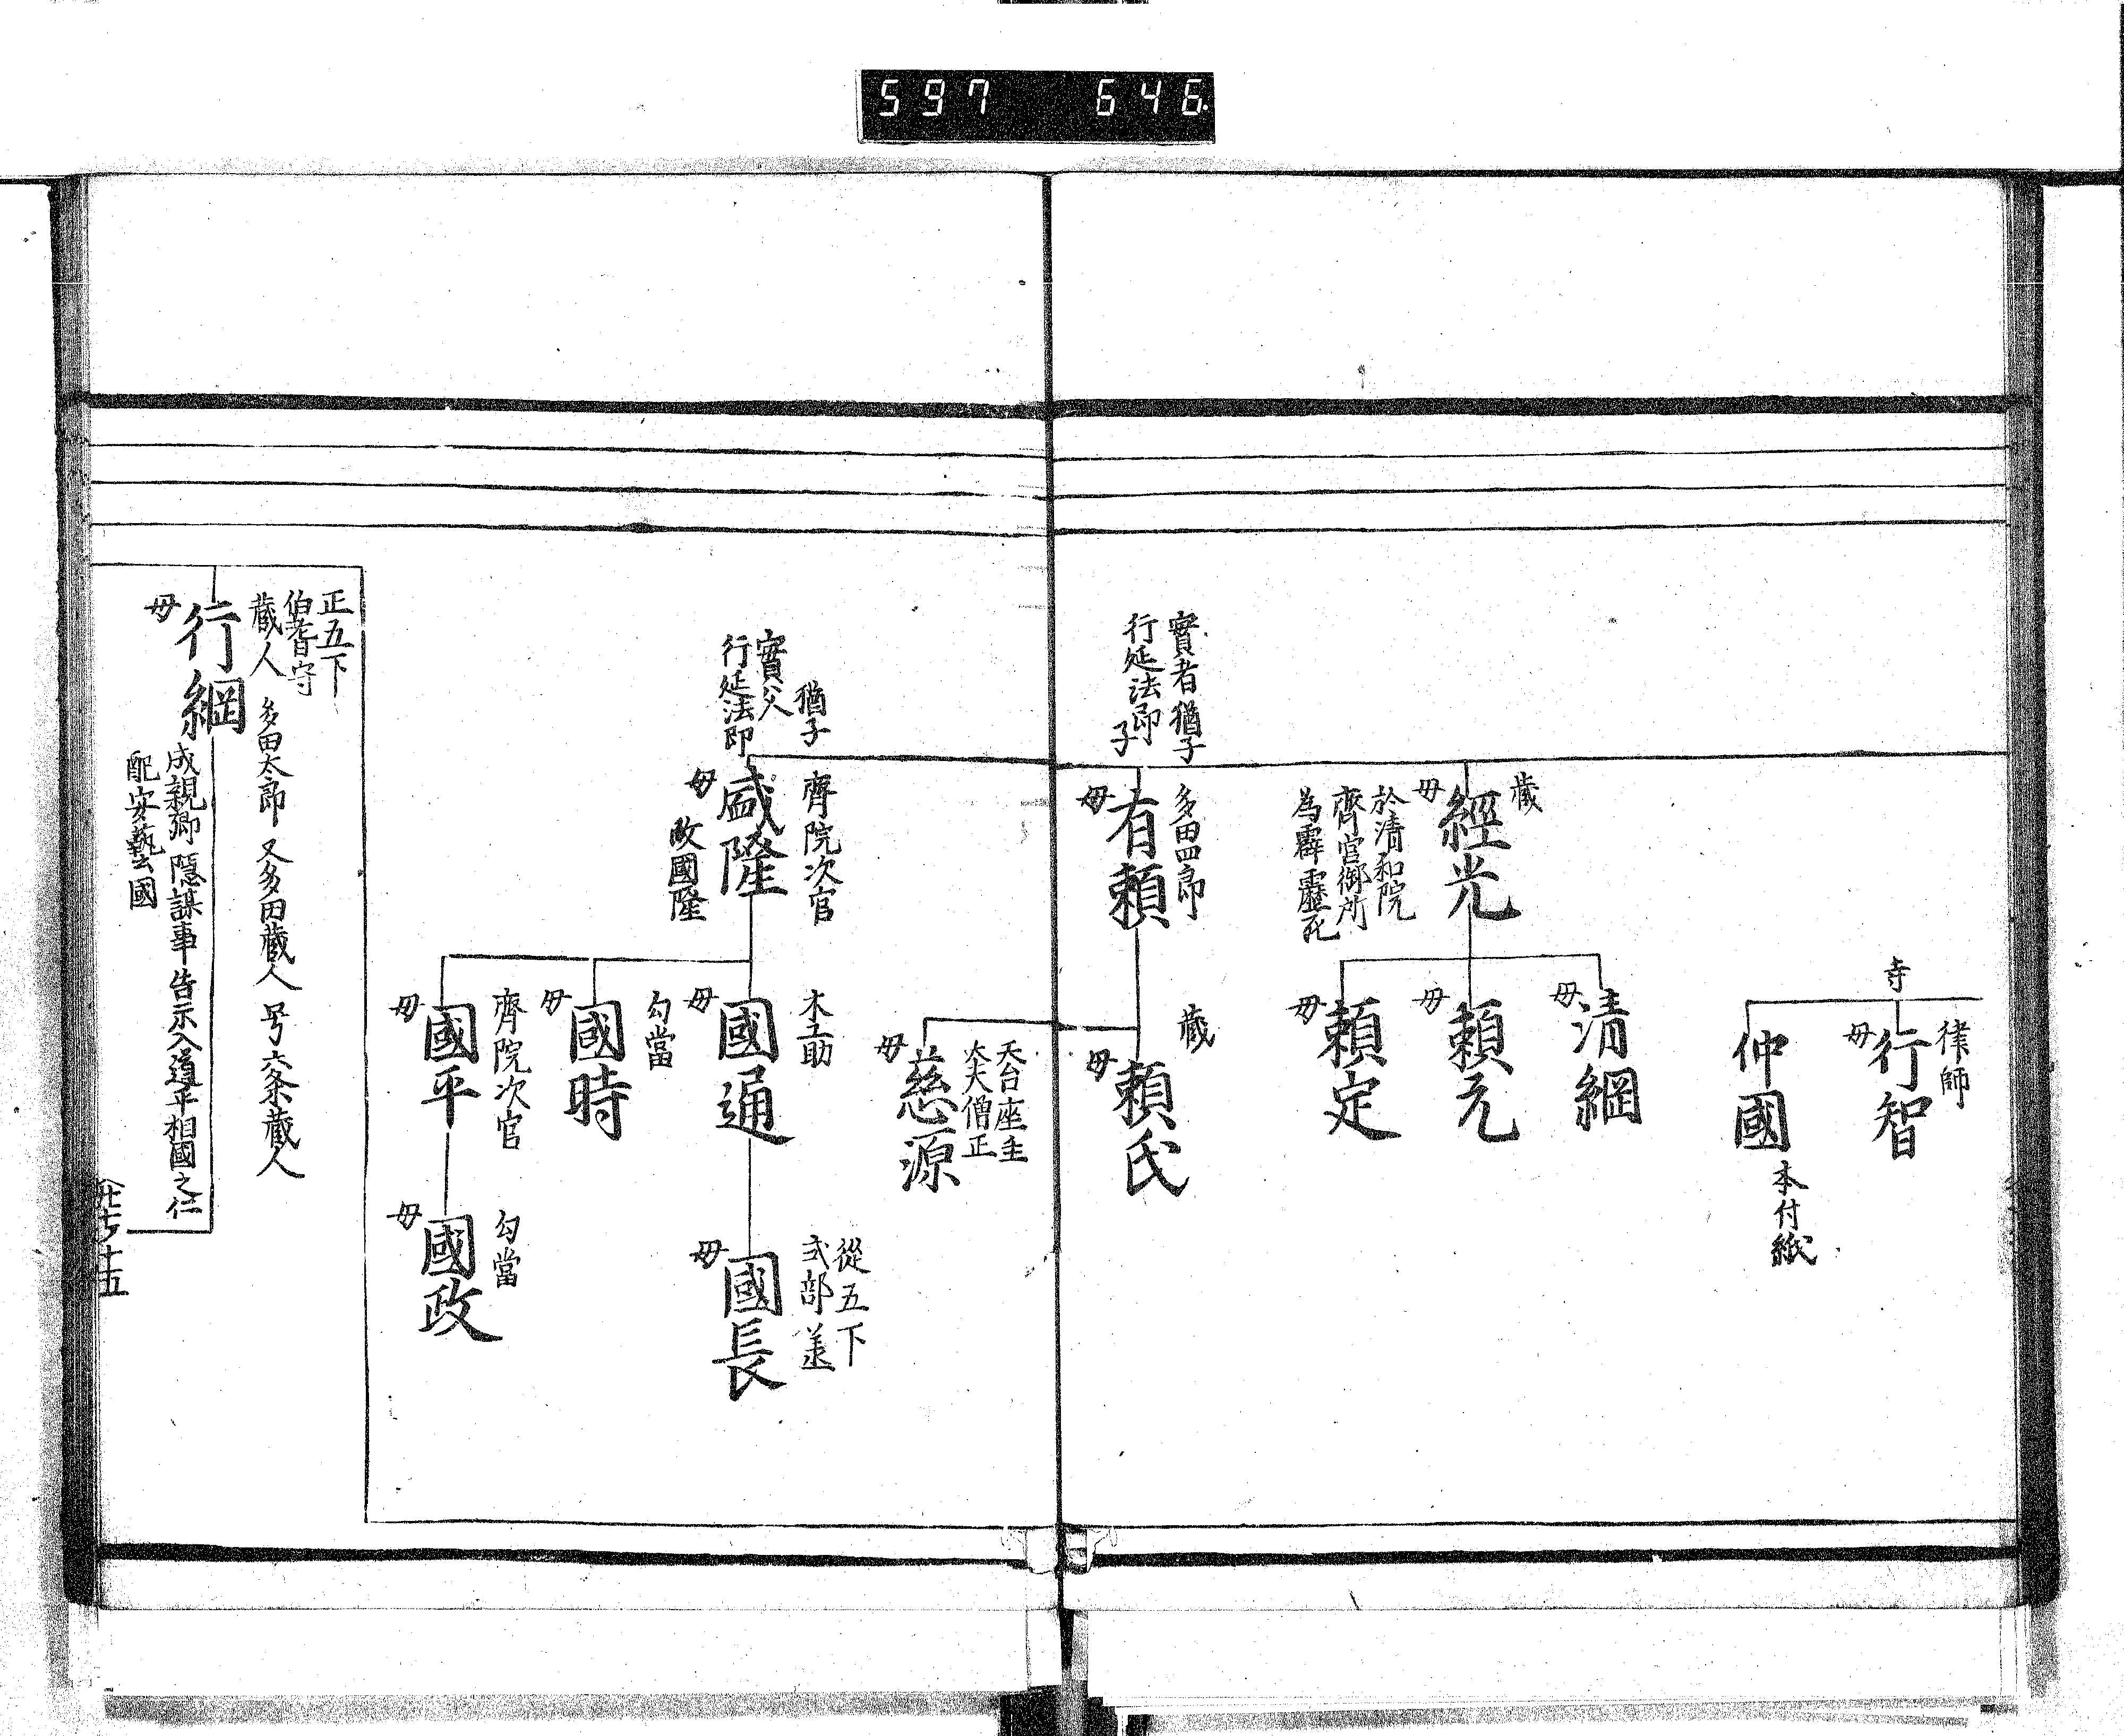 597 646.
寺
律師
行智
母
仲國
本付紙
藏
經光
母
於清和院
齊宮御所
為霹靂死
清綱
母
頼元
母
頼定
母
實者猶子
行延法印
子
多田四郎
有頼
母
藏
頼氏
母
天台座主
大僧正
慈源
母
猶子
實父
行延法印
齊院次官
盛隆
母
改國隆
木工助
國通
母
從五下
式部丞
國長
母
勾當
國時
母
齊院次官
國平
母
勾當
國政
母
正五下
伯耆守
藏人
多田太郎 又多田藏人 号六条藏人
行綱
母
成親卿隱謀事告示入道平相國之仁
配安藝國